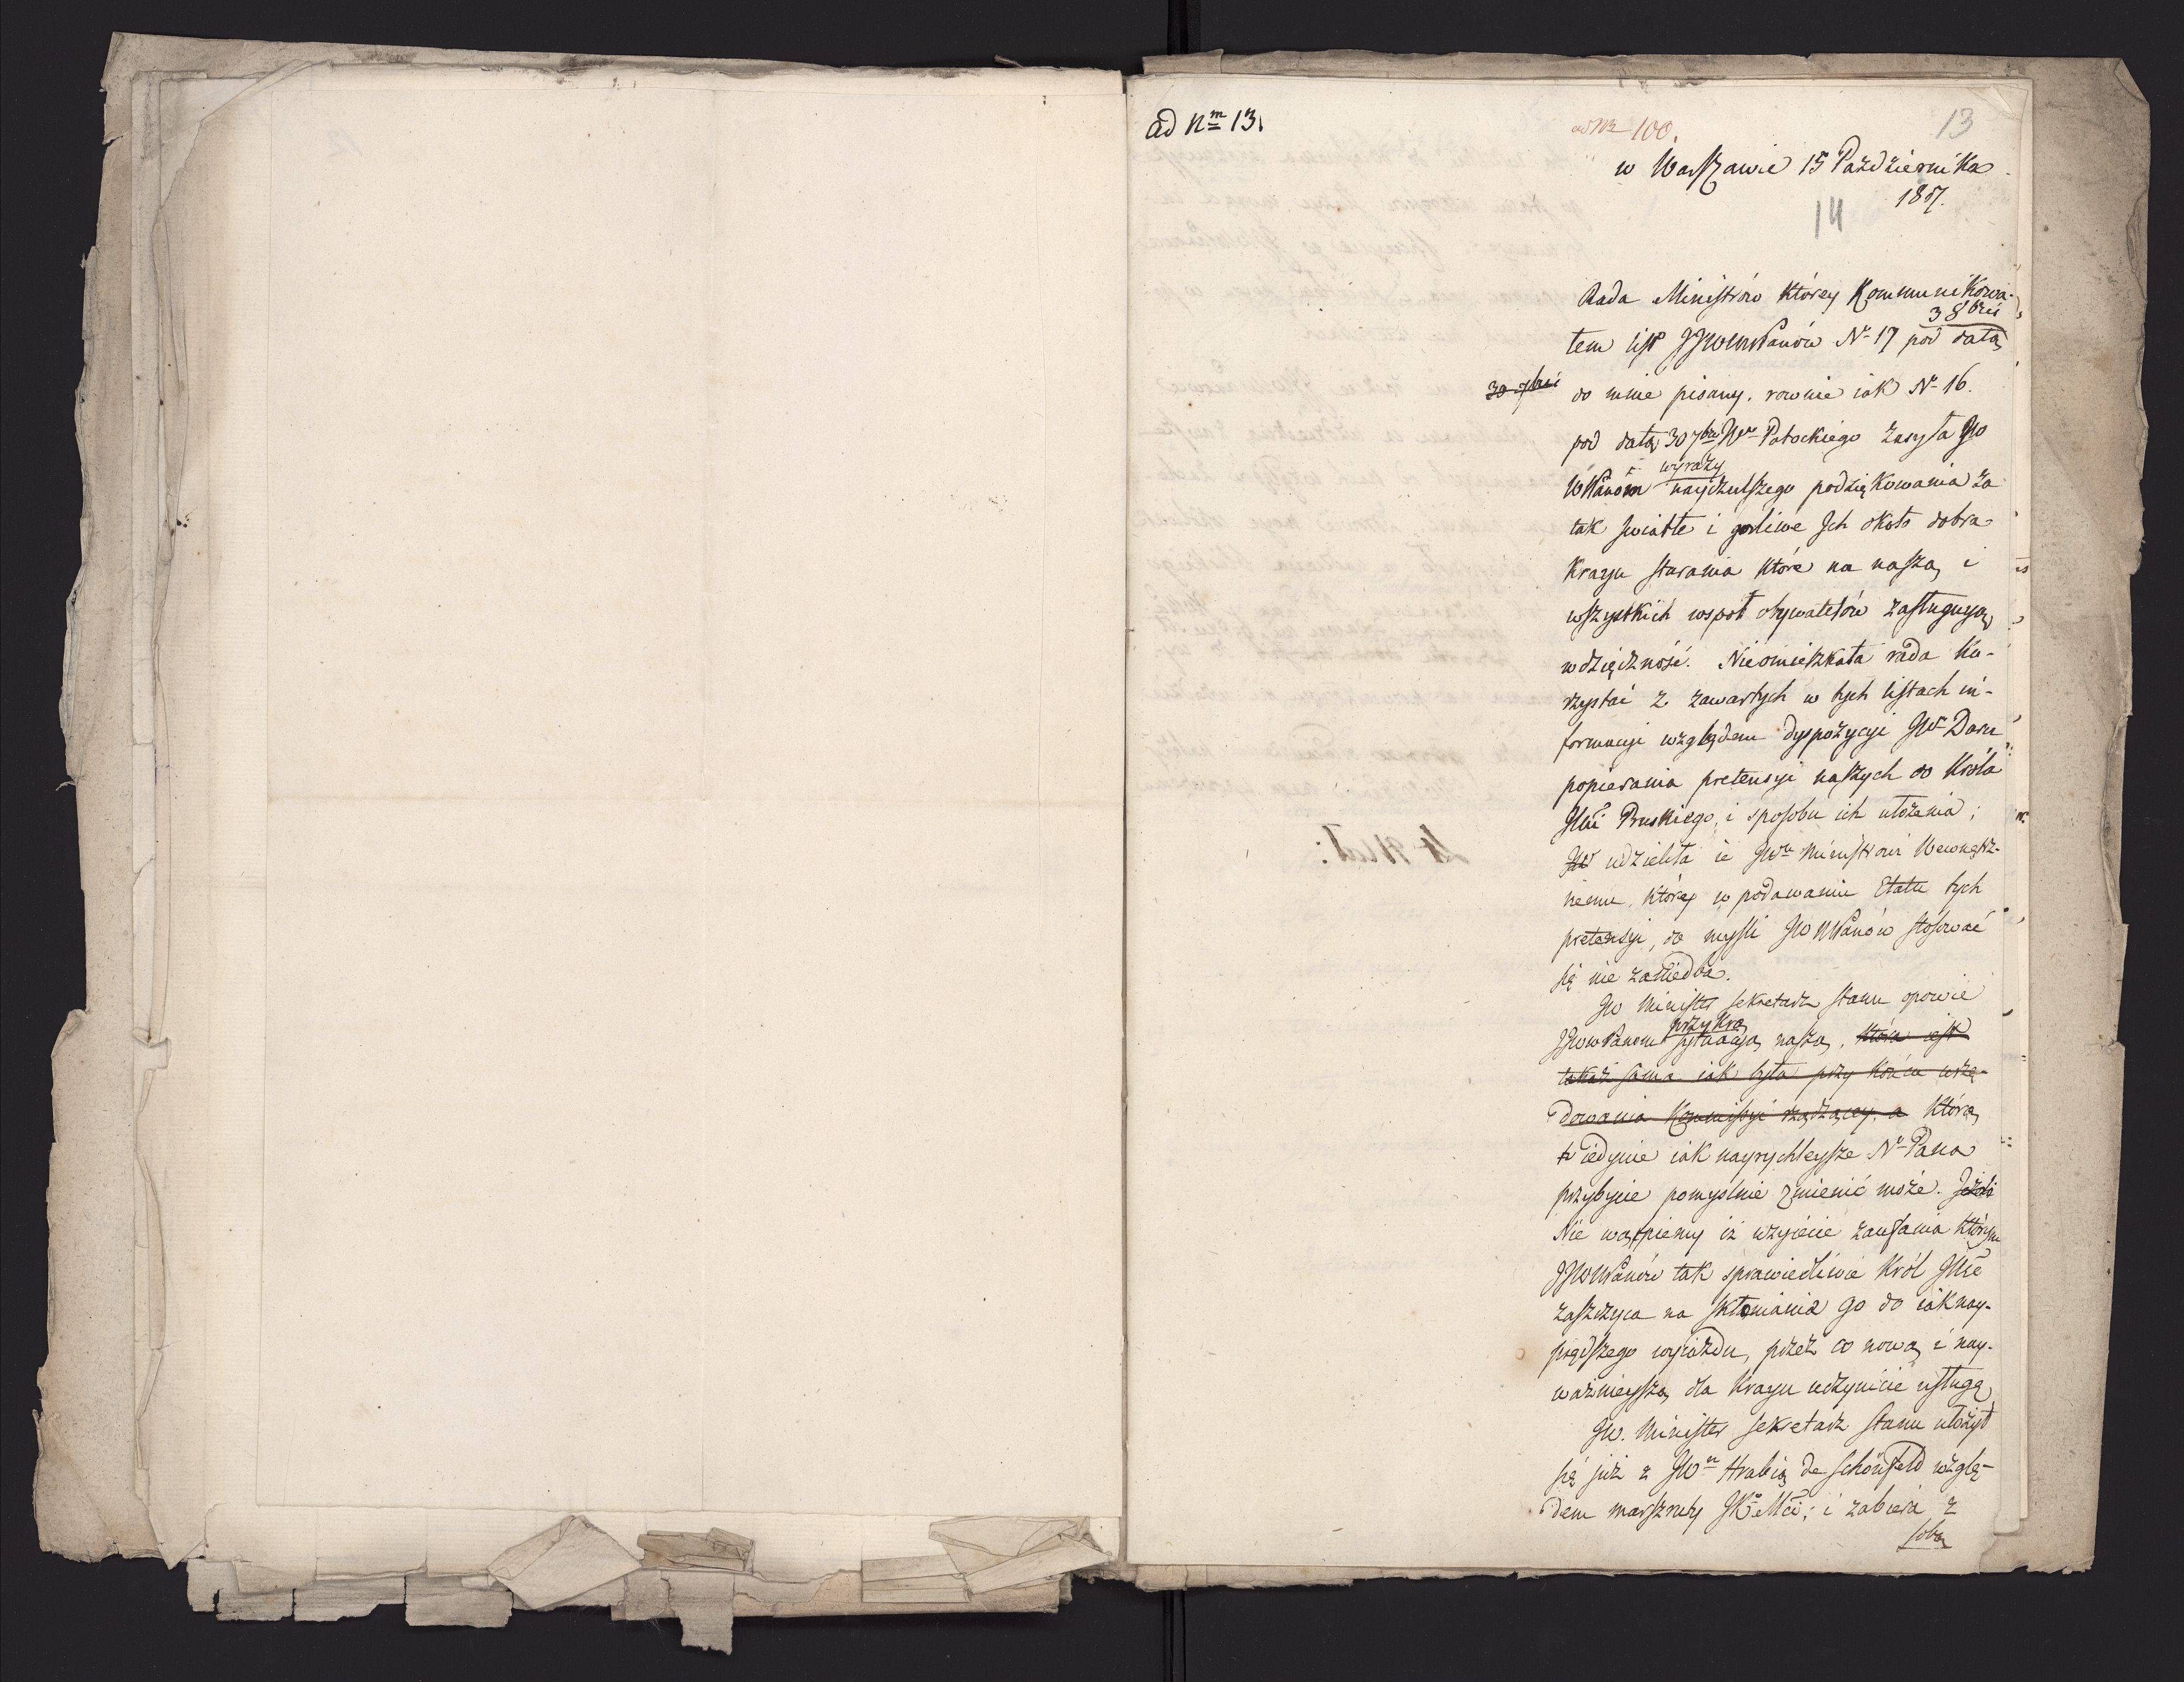 ad n<sup>m</sup> 13.
ad Nr 100.
13
w Warszawie 15 Października
1807.
14
Rada Ministrów którey kommunikowa-
3 8bris
łem list JJWWPanów Nr 17 pod datą
30 7bris
do mnie pisany, rownie iak Nr 16.
pod datą 30 7bris JWo Potockiego zasyła JW
wyrazy
WPanom nayczulszego podziękowania za
tak swiatłe i gorliwe Ich około dobra
Kraju starania które na naszą i
wszystkich wspoł obywatelów zasługuią
wdzięczność. Nieomieszkała rada ko-
rzystać z zawartych w tych listach in-
formacyi względem dyspozycyi JWo Daru
popierania pretensyi naszych do Króla
JMci Pruskiego, i sposobu ich ułożenia;
JW udzieliła ie JWu Ministrowi Wewnętrz-
nemu, który w podawaniu Etatu tych
pretensyi, do mysli JWWPanów stosować
się nie zaniedba.
JW Minister Sekretarz Stanu opowie
przykrą
JJWWPanom sytuacyą naszą, która iest
takaż sama iak była przy końcu urzę-
dowania Kommissyi rządzącey, a którą
iedynie iak nayrychleysze No Pana
przybycie pomyslnie zmienić może. Jeżeli
Nie wątpiemy iż użyiecie zaufania którym
JJWWPanów tak sprawiedliwie Król JMć
zaszczyca na skłonienia go do iaknay-
prędszego wyiazdu, przez co nową i nay-
ważnieyszą dla Kraju uczynicie usługę
JW. Minister Sekretarz Stanu ułożył
się już z JWm Hrabią de Schönfeld wzglę-
dem marszruty JKo Mci; i zabiera z
sobą